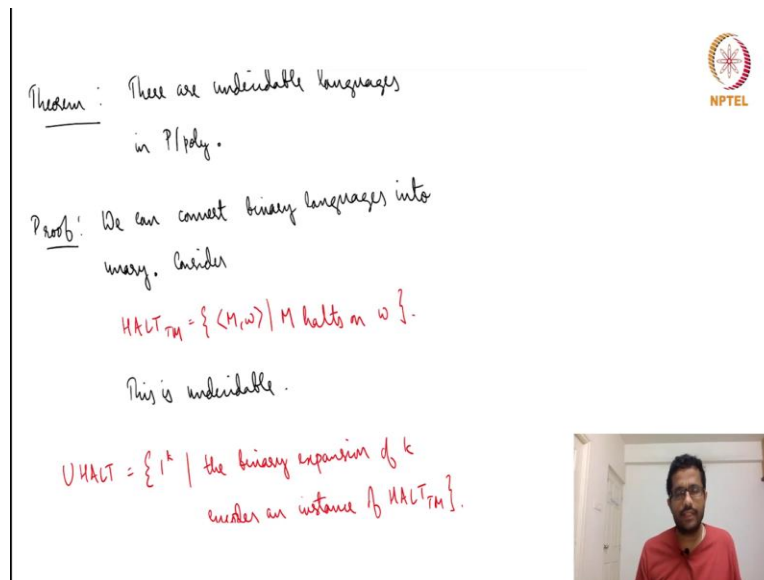 Theorem: There are undecidable languages
in P/poly.
Proof: We can convert binary languages into
unary. Consider
HALT_TM = { ⟨M,w⟩ | M halts on w }.
This is undecidable.
UHALT = { 1^k | the binary expansion of k
encodes an instance of HALT_TM }.
NPTEL